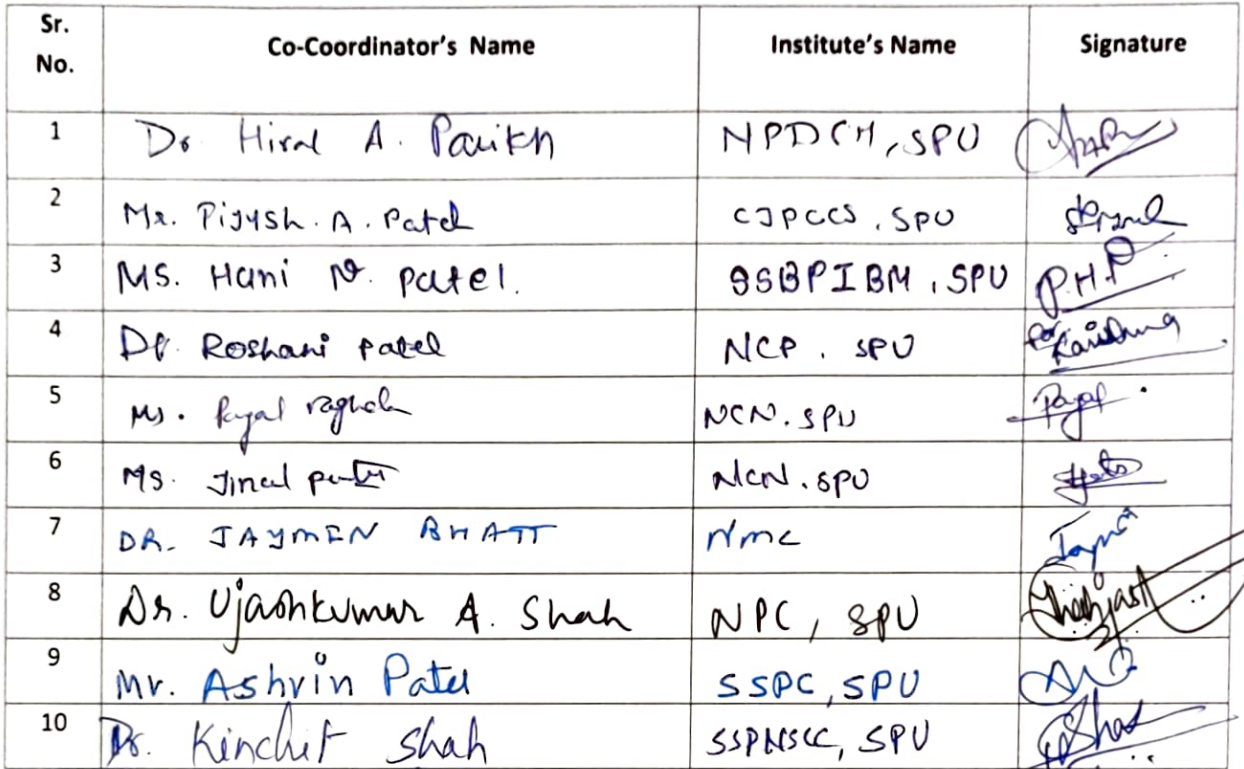 Sr. No. Co-Coordinator's Name Institute's Name Signature
1 Dr Hiral A. Parikh NPDCH, SPU
2 Mr. Pijush. A. Patel CJPCCS, SPU
3 MS. Hani N. patel. SSBPIBM, SPU P.H.P
4 Dr. Roshani patel NCP. SPU
5 Ms. Payal NCN. SPU Payal
6 MS. Jinal NCN. SPU
7 DR. JAYMEN BHATT NMC
8 Dr. Ujashkumar A. Shah NPC, SPU
9 Mr. Ashvin Patel SSPC, SPU
10 Dr. Kinchit Shah SSPNSCC, SPU